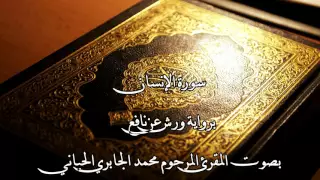 سورة الإنسان
برواية ورش عن نافع
بصوت المقرئ المرحوم محمد الجابري الحياني